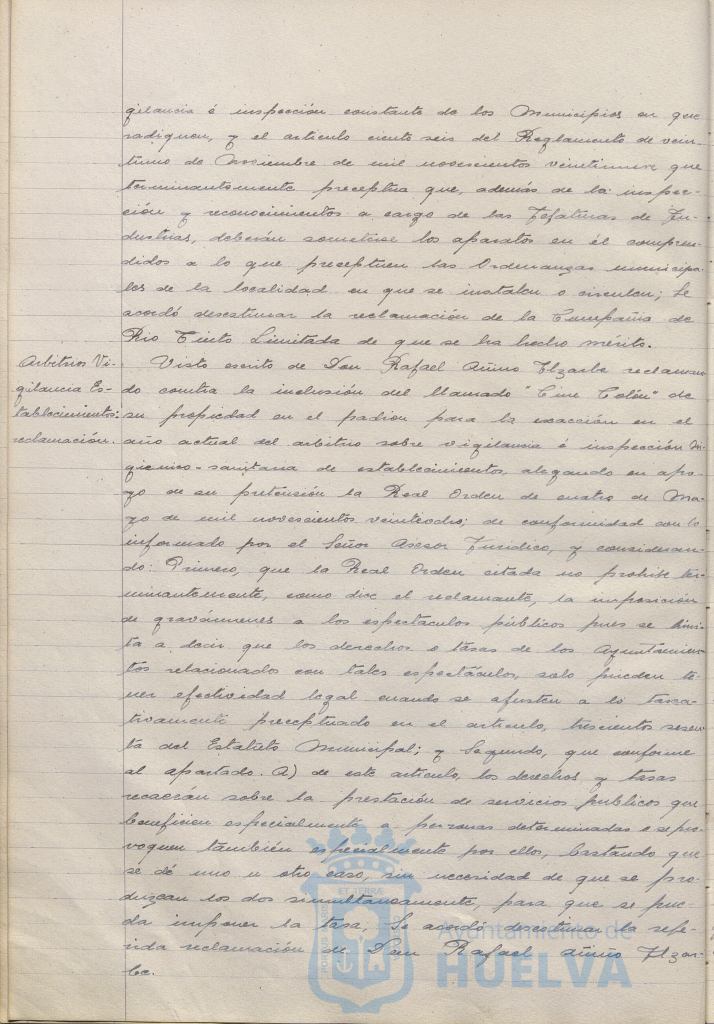 gilancia é inspección constante de los Municipios en que
radiquen, y el articulo ciento seis del Reglamento de vein-
tiuno de Noviembre de mil novecientos veintinueve que
terminantemente preceptua que, además de la inspec-
ción y reconocimientos a cargo de las Jefaturas de In-
dustrias, deberán someterse los aparatos en él compren-
didos a lo que preceptuen las Ordenanzas municipa-
les de la localidad en que se instalen o circulen; Se
acordó desestimar la reclamación de la Compañia de
Rio Tinto Limitada de que se ha hecho mérito.
Arbitrios Vi-
gilancia Es-
tablecimientos:
reclamación.
Visto escrito de Don Rafael Elzarbe reclaman
do contra la inclusión del llamado "Cine Colón" de
su propiedad en el padron para la exacción en el
año actual del arbitrio sobre vigilancia é inspección hi-
gienico-sanitaria de establecimientos, alegando en apo-
yo de su pretensión la Real Orden de cuatro de Ma-
yo de mil novecientos veinteocho; de conformidad con lo
informado por el Señor Asesor Juridico, y consideran-
do: Primero, que la Real Orden citada no prohibe ter-
minantemente, como dice el reclamante, la imposición
de gravámenes a los espectaculos públicos pues se limi-
ta a decir que los derechos o tasas de los Ayuntamien
tos relacionados con tales espectáculos, solo pueden te-
ner efectividad legal cuando se ajusten a lo taxa-
tivamente preceptuado en el articulo, trescientos sesen
ta del Estatuto Municipal; y Segundo, que conforme
al apartado. A) de este articulo, los derechos y tasas
recaerán sobre la prestación de servicios publicos que
beneficien especialmente a personas determinadas o se pro-
voquen también especialmente por ellos, bastando que
se dé uno u otro caso, sin necesidad de que se pro-
duzcan los dos simultaneamente, para que se pue-
da imponer la tasa; Se acordó desestimar la refe-
rida reclamación de Don Rafael Elzar-
be.
Ayuntamiento de
HUELVA